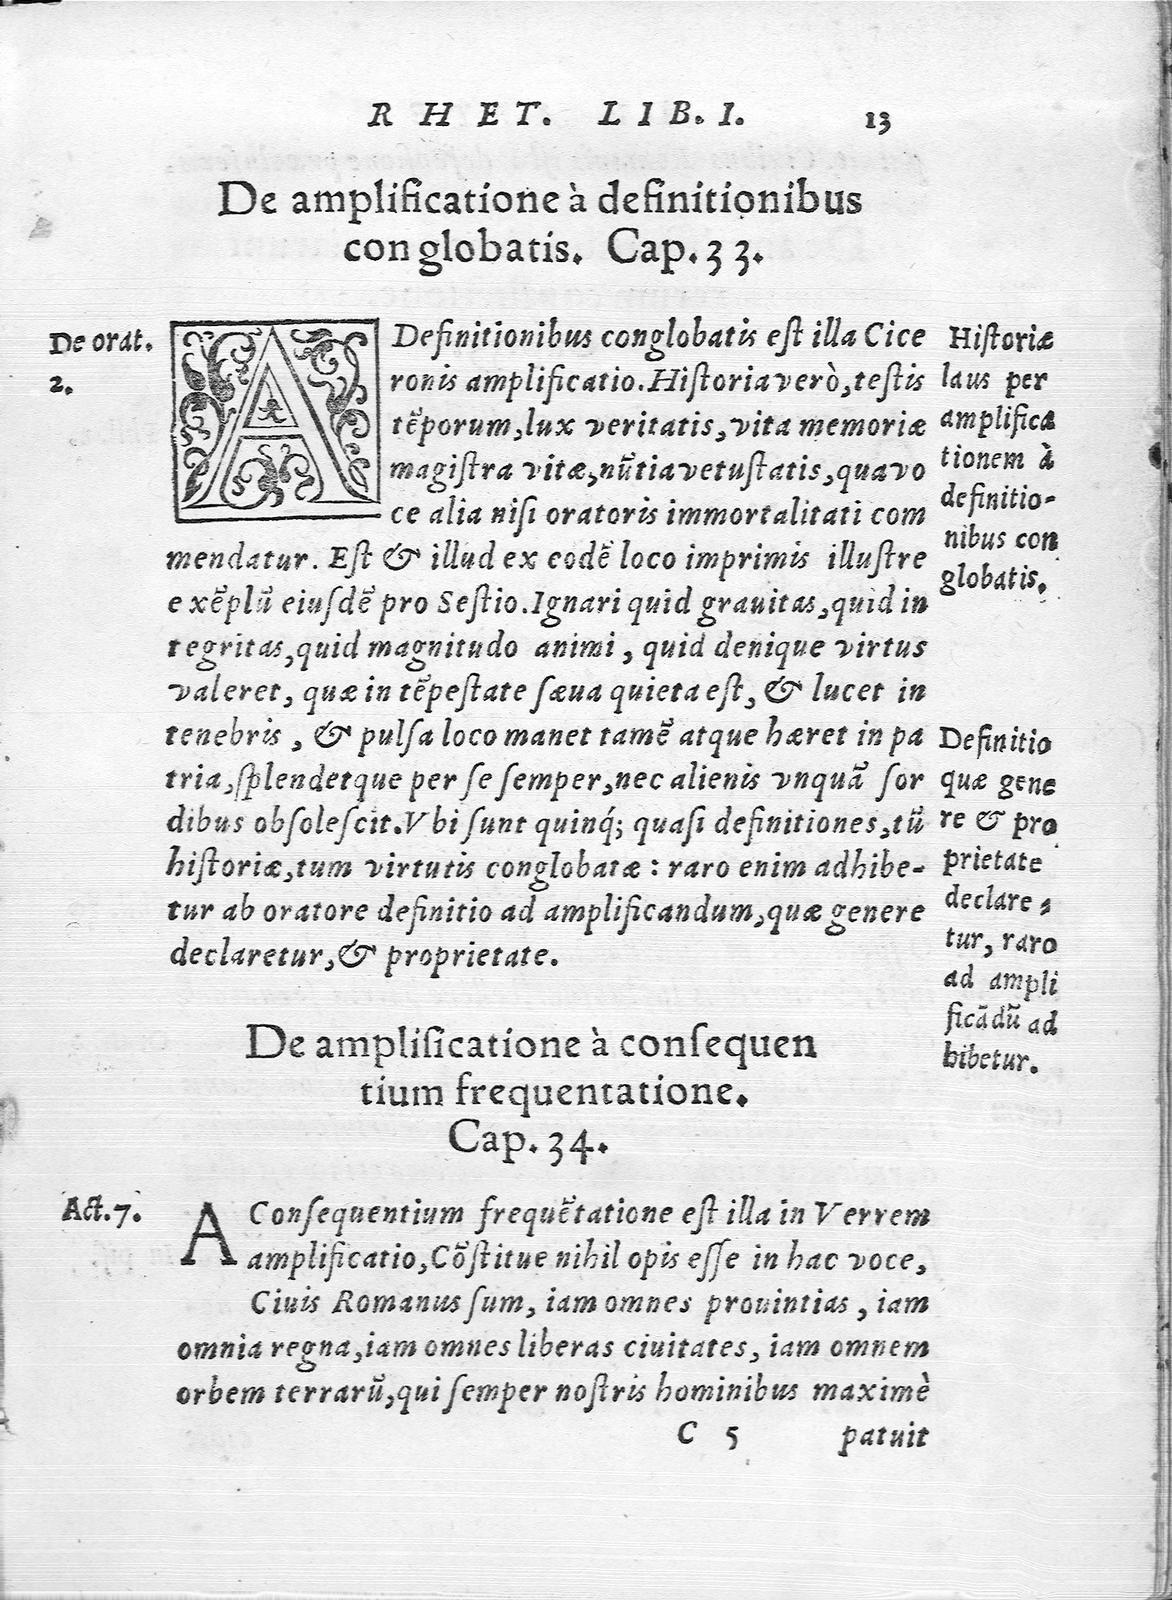 RHET. LIB. I. 13
De amplificatione à definitionibus
conglobatis. Cap. 33.
De orat.
2.
A Definitionibus conglobatis eſt illa Cice
ronis amplificatio. Hiſtoria verò, teſtis
tẽporum, lux veritatis, vita memoriæ
magiſtra vitæ, nũtia vetuſtatis, qua vo
ce alia niſi oratoris immortalitati com
mendatur. Eſt & illud ex eodẽ loco imprimis illuſtre
exẽplũ eiuſdẽ pro Seſtio. Ignari quid grauitas, quid in
tegritas, quid magnitudo animi, quid denique virtus
valeret, quæ in tẽpeſtate ſæua quieta eſt, & lucet in
tenebris, & pulſa loco manet tamẽ atque hæret in pa
tria, ſplendetque per ſe ſemper, nec alienis vnquã ſor
dibus obſoleſcit. Vbi ſunt quinq́; quaſi definitiones, tũ
hiſtoriæ, tum virtutis conglobatæ: raro enim adhibe-
tur ab oratore definitio ad amplificandum, quæ genere
declaretur, & proprietate.
Hiſtoriæ
laus per
amplifica
tionem à
definitio-
nibus con
globatis.
Definitio
quæ gene
re & pro
prietate
declare-
tur, raro
ad ampli
ficãdũ ad
hibetur.
De amplificatione à conſequen
tium frequentatione.
Cap. 34.
Act. 7.
A Conſequentium frequẽtatione eſt illa in Verrem
amplificatio, Cõſtitue nihil opis eſſe in hac voce,
Ciuis Romanus ſum, iam omnes prouintias, iam
omnia regna, iam omnes liberas ciuitates, iam omnem
orbem terrarũ, qui ſemper noſtris hominibus maximè
C 5 patuit